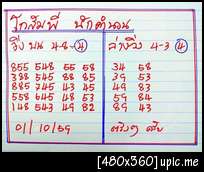 โกสัมพี นักคำนวน
วิ่ง บน 4-8-4 ล่างวิ่ง 4-3 4
855 548 55 58 34 58
338 545 88 85 39 53
885 745 43 45 49 83
458 548 53 59 84
148 543 49 82 89 43
01/10/59
[480x360] upic.me